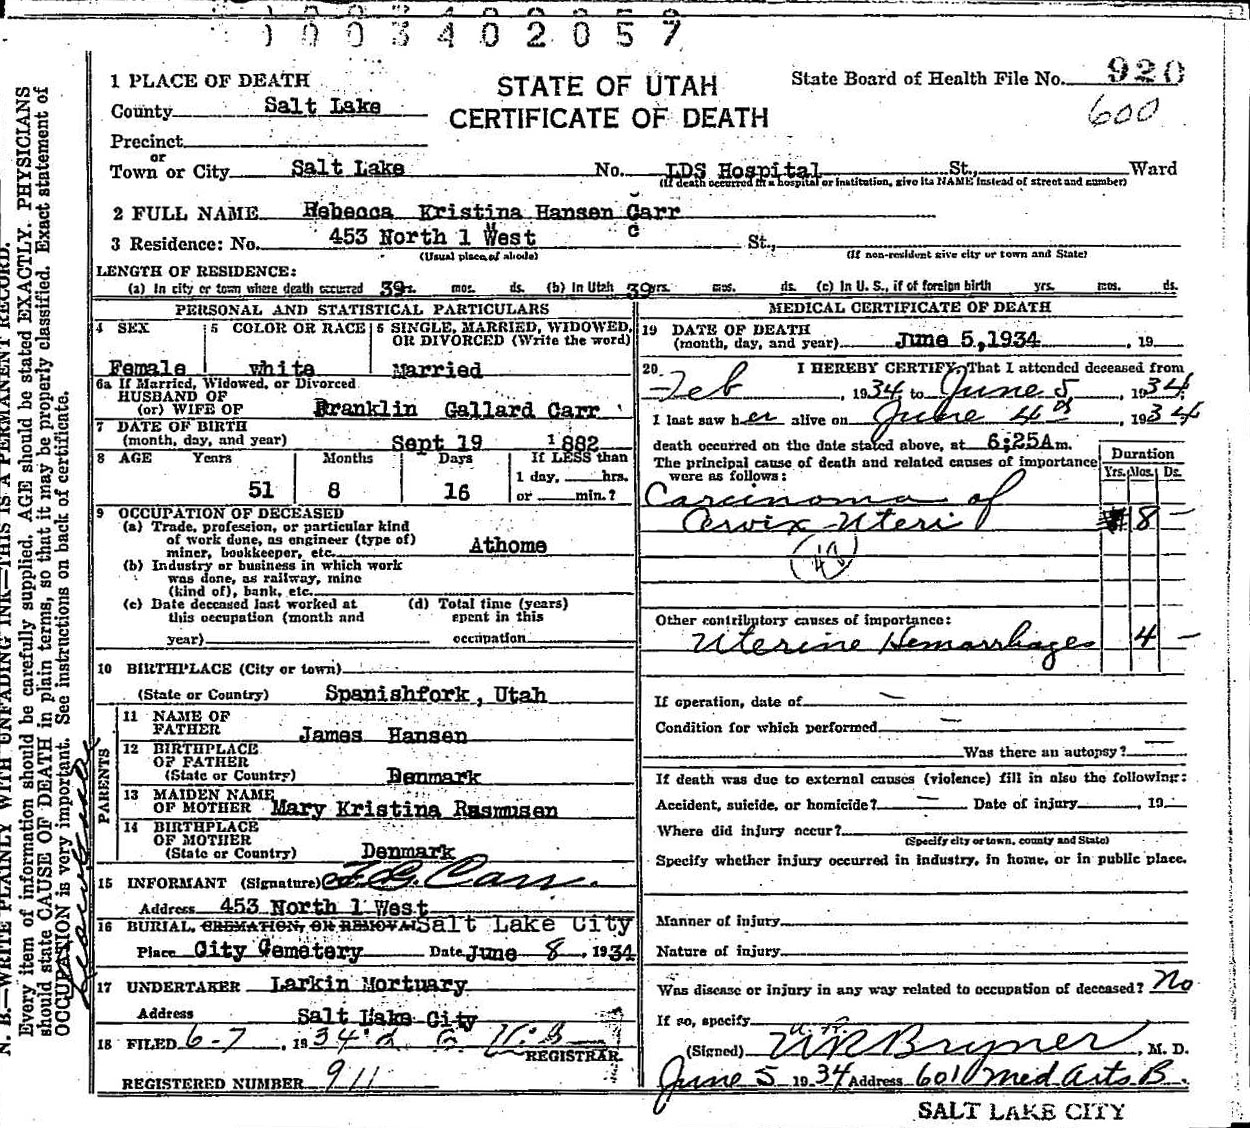 1003402057
1 PLACE OF DEATH
County Salt Lake
Precinct
or
Town or City Salt Lake No. LDS Hospital St., Ward
(If death occurred in a hospital or institution, give its NAME instead of street and number)
STATE OF UTAH
CERTIFICATE OF DEATH
State Board of Health File No. 920
600
2 FULL NAME Rebecca Kristina Hansen Carr
3 Residence: No. 453 North 1 West St.,
(Usual place of abode) (If non-resident give city or town and State)
LENGTH OF RESIDENCE:
(a) In city or town where death occurred 39 yrs. mos. ds. (b) In Utah 39 yrs. mos. ds. (c) In U. S., if of foreign birth yrs. mos. ds.
PERSONAL AND STATISTICAL PARTICULARS
4 SEX 5 COLOR OR RACE 6 SINGLE, MARRIED, WIDOWED, OR DIVORCED (Write the word)
Female white Married
6a If Married, Widowed, or Divorced
HUSBAND OF
(or) WIFE OF Franklin Gallard Carr
7 DATE OF BIRTH
(month, day, and year) Sept 19 1882
8 AGE Years Months Days If LESS than
1 day, hrs.
51 8 16 or min.?
9 OCCUPATION OF DECEASED
(a) Trade, profession, or particular kind
of work done, as engineer (type of)
miner, bookkeeper, etc. Athome
(b) Industry or business in which work
was done, as railway, mine
(kind of), bank, etc.
(c) Date deceased last worked at (d) Total time (years)
this occupation (month and spent in this
year) occupation
10 BIRTHPLACE (City or town)
(State or Country) Spanishfork, Utah
PARENTS
11 NAME OF
FATHER James Hansen
12 BIRTHPLACE
OF FATHER
(State or Country) Denmark
13 MAIDEN NAME
OF MOTHER Mary Kristina Rasmusen
14 BIRTHPLACE
OF MOTHER
(State or Country) Denmark
15 INFORMANT (Signature) F. G. Carr.
Address 453 North 1 West
16 BURIAL, CREMATION, OR REMOVAL Salt Lake City
Place City Cemetery Date June 8, 1934
17 UNDERTAKER Larkin Mortuary
Address Salt Lake City
18 FILED 6-7, 1934
REGISTRAR.
REGISTERED NUMBER 911
MEDICAL CERTIFICATE OF DEATH
19 DATE OF DEATH
(month, day, and year) June 5,1934, 19
20. I HEREBY CERTIFY, That I attended deceased from
Feb, 1934 to June 5, 1934.
I last saw her alive on June 4th, 1934
death occurred on the date stated above, at 6:25A m.
The principal cause of death and related causes of importance
were as follows:
Duration
Yrs. Mos. Ds.
Carcinoma of
Cervix-Uteri 8 —
48
Other contributory causes of importance:
Uterine Hemorrhages 4 —
If operation, date of —
Condition for which performed —
Was there an autopsy? —
If death was due to external causes (violence) fill in also the following:
Accident, suicide, or homicide? — Date of injury, 19
Where did injury occur?
(Specify city or town, county and State)
Specify whether injury occurred in industry, in home, or in public place.
Manner of injury
Nature of injury
Was disease or injury in any way related to occupation of deceased? No
If so, specify
(Signed) W R Bryner, M. D.
June 5 1934 Address 601 Med Arts B.
SALT LAKE CITY
N. B.—WRITE PLAINLY WITH UNFADING INK—THIS IS A PERMANENT RECORD.
Every item of information should be carefully supplied. AGE should be stated EXACTLY. PHYSICIANS
should state CAUSE OF DEATH in plain terms, so that it may be properly classified. Exact statement of
OCCUPATION is very important. See instructions on back of certificate.